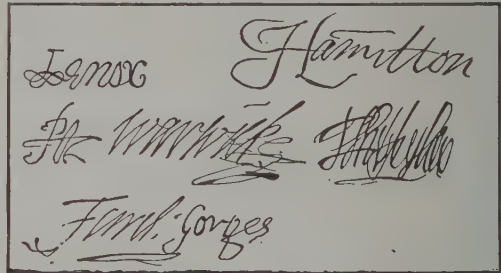 Lenox Hamilton
Warwick
Ferd: Gorges